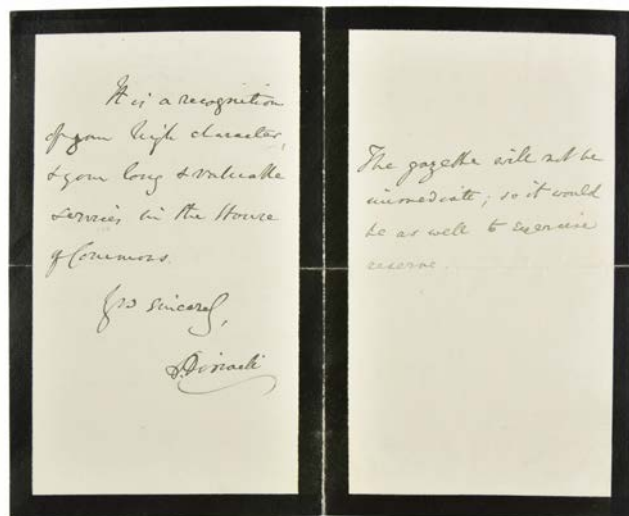 It is a recognition
of your high character,
& your long & valuable
services in the House
of Commons.
Yrs sincerely,
D. Disraeli
The gazette will not be
immediate; so it would
be as well to exercise
reserve.